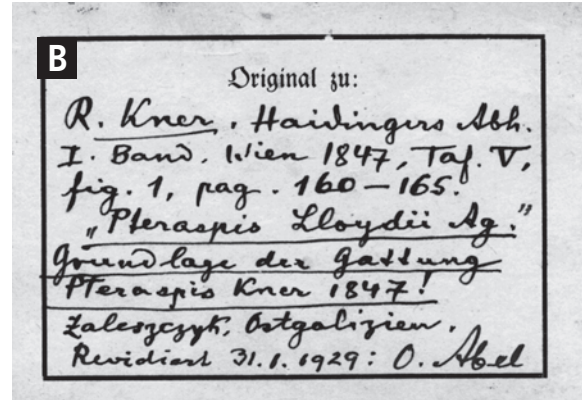 B
Original zu:
R. Kner. Haidingers Abh.
I. Band. Wien 1847, Taf. V,
fig. 1, pag. 160–165.
„Pteraspis Lloydii Ag.“
Grundlage der Gattung
Pteraspis Kner 1847!
Zaleszczyk, Ostgalizien.
Revidiert 31.1.1929: O. Abel